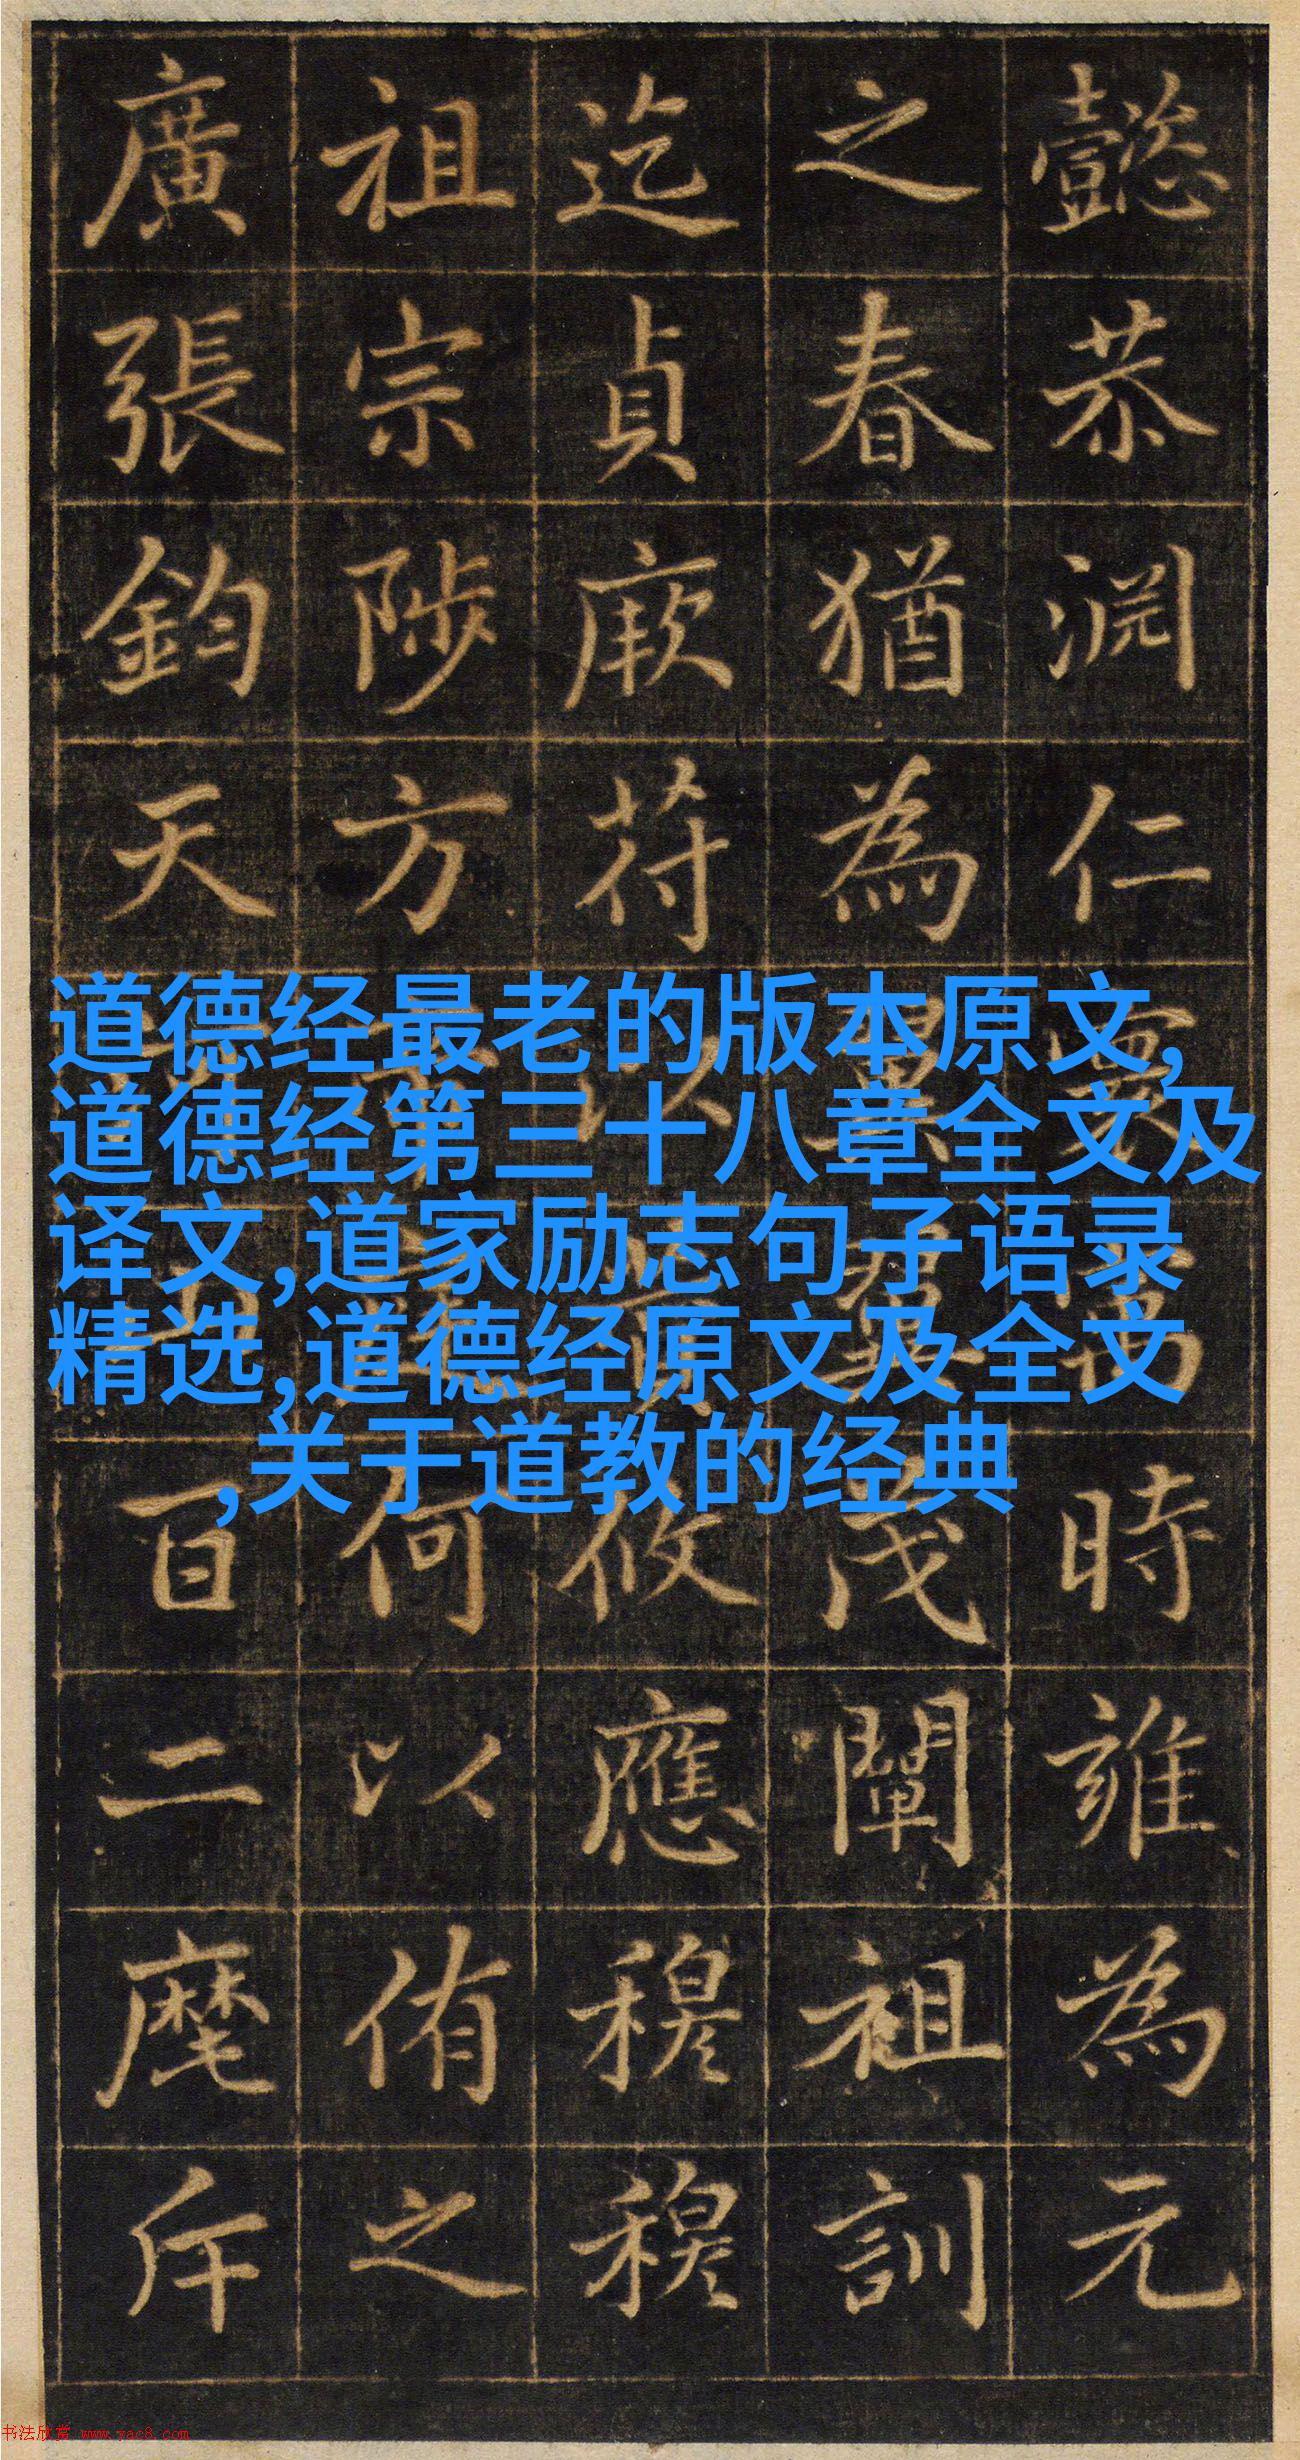 懿恭渊仁寰時雍為元
之春猶為茂闡祖訓
迄貞厥符以攸應穆穆
祖宗陟方何以侑之
廣張鈞天百二麾斥
道德经最老的版本原文,
道德经第三十八章全文及
译文,道家励志句子语录
精选,道德经原文及全文
,关于道教的经典
书法欣赏 www.yac8.com